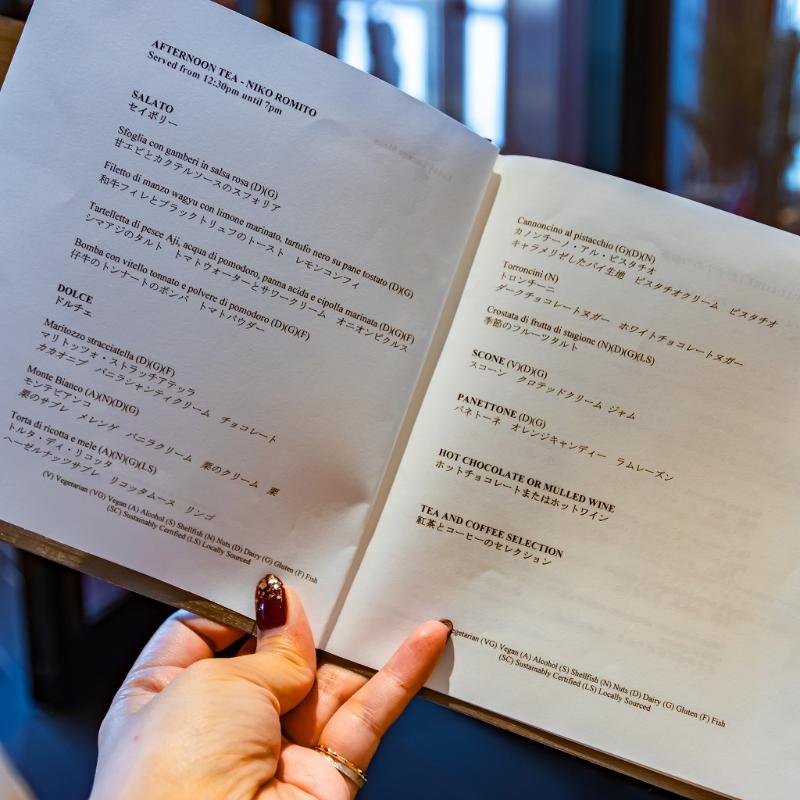 AFTERNOON TEA - NIKO ROMITO
Served from 12:30pm until 7pm
SALATO
セイボリー
Sfoglia con gamberi in salsa rosa (D)(G)
甘エビとカクテルソースのスフォリア
Filetto di manzo wagyu con limone marinato, tartufo nero su pane tostato (D)(G)
和牛フィレとブラックトリュフのトースト レモンコンフィ
Tartelletta di pesce Aji, acqua di pomodoro, panna acida e cipolla marinata (D)(G)(F)
シマアジのタルト トマトウオーターとサワークリーム オニオンピクルス
Bomba con vitello tonnato e polvere di pomodoro (D)(G)(F)
仔牛のトンナートのボンバ トマトパウダー
DOLCE
ドルチェ
Maritozzo stracciatella (D)(G)(F)
マリトッツォ・ストラッチアテッラ
カカオニブ バニラシャンティクリーム チョコレート
Monte Bianco (A)(N)(D)(G)
モンテビアンコ
栗のサブレ メレンゲ バニラクリーム 栗のクリーム 栗
Torta di ricotta e mele (A)(N)(G)(LS)
トルタ・ディ・リコッタ
ヘーゼルナッツサブレ リコッタムース リンゴ
(V) Vegetarian (VG) Vegan (A) Alcohol (S) Shellfish (N) Nuts (D) Dairy (G) Gluten (F) Fish
(SC) Sustainably Certified (LS) Locally Sourced
Cannoncino al pistacchio (G)(D)(N)
カノンチーノ・アル・ピスタチオ
キャラメリゼしたパイ生地 ピスタチオクリーム ピスタチオ
Torroncini (N)
トロンチーニ
ダークチョコレートヌガー ホワイトチョコレートヌガー
Crostata di frutta di stagione (N)(D)(G)(LS)
季節のフルーツタルト
SCONE (V)(D)(G)
スコーン クロテッドクリーム ジャム
PANETTONE (D)(G)
パネトーネ オレンジキャンディー ラムレーズン
HOT CHOCOLATE OR MULLED WINE
ホットチョコレートまたはホットワイン
TEA AND COFFEE SELECTION
紅茶とコーヒーのセレクション
egetarian (VG) Vegan (A) Alcohol (S) Shellfish (N) Nuts (D) Dairy (G) Gluten (F) Fish
(SC) Sustainably Certified (LS) Locally Sourced